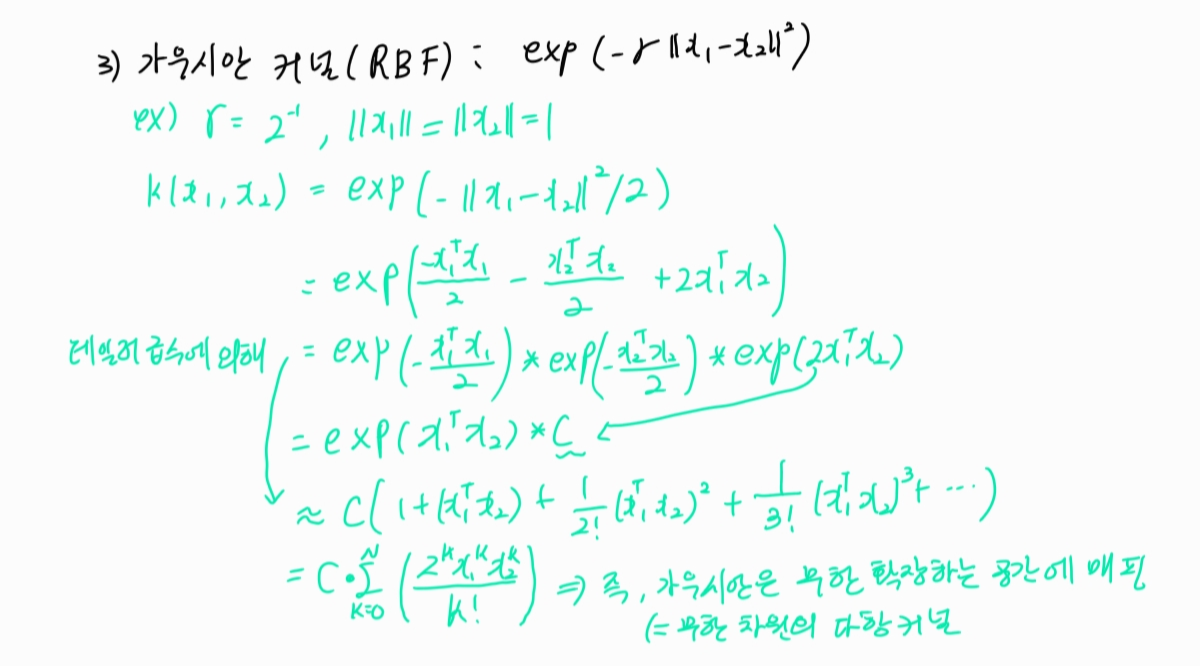 3) 가우시안 커널(RBF) : exp(-γ ||x₁-x₂||²)
ex) γ = 2⁻¹, ||x₁|| = ||x₂|| = 1
k(x₁, x₂) = exp(-||x₁-x₂||²/2)
= exp(-x₁ᵀx₁/2 - x₂ᵀx₂/2 + 2x₁ᵀx₂)
테일러 급수에 의해 = exp(-x₁ᵀx₁/2) * exp(-x₂ᵀx₂/2) * exp(2x₁ᵀx₂)
= exp(x₁ᵀx₂) * C
≈ C(1+(x₁ᵀx₂) + 1/2! (x₁ᵀx₂)² + 1/3! (x₁ᵀx₂)³+ ⋯)
= C·∑ᴺₖ₌₀ (2ᵏx₁ᵏx₂ᵏ/k!) ⇒ 즉, 가우시안은 무한 확장하는 공간에 매핑
(= 무한 차원의 다항커널